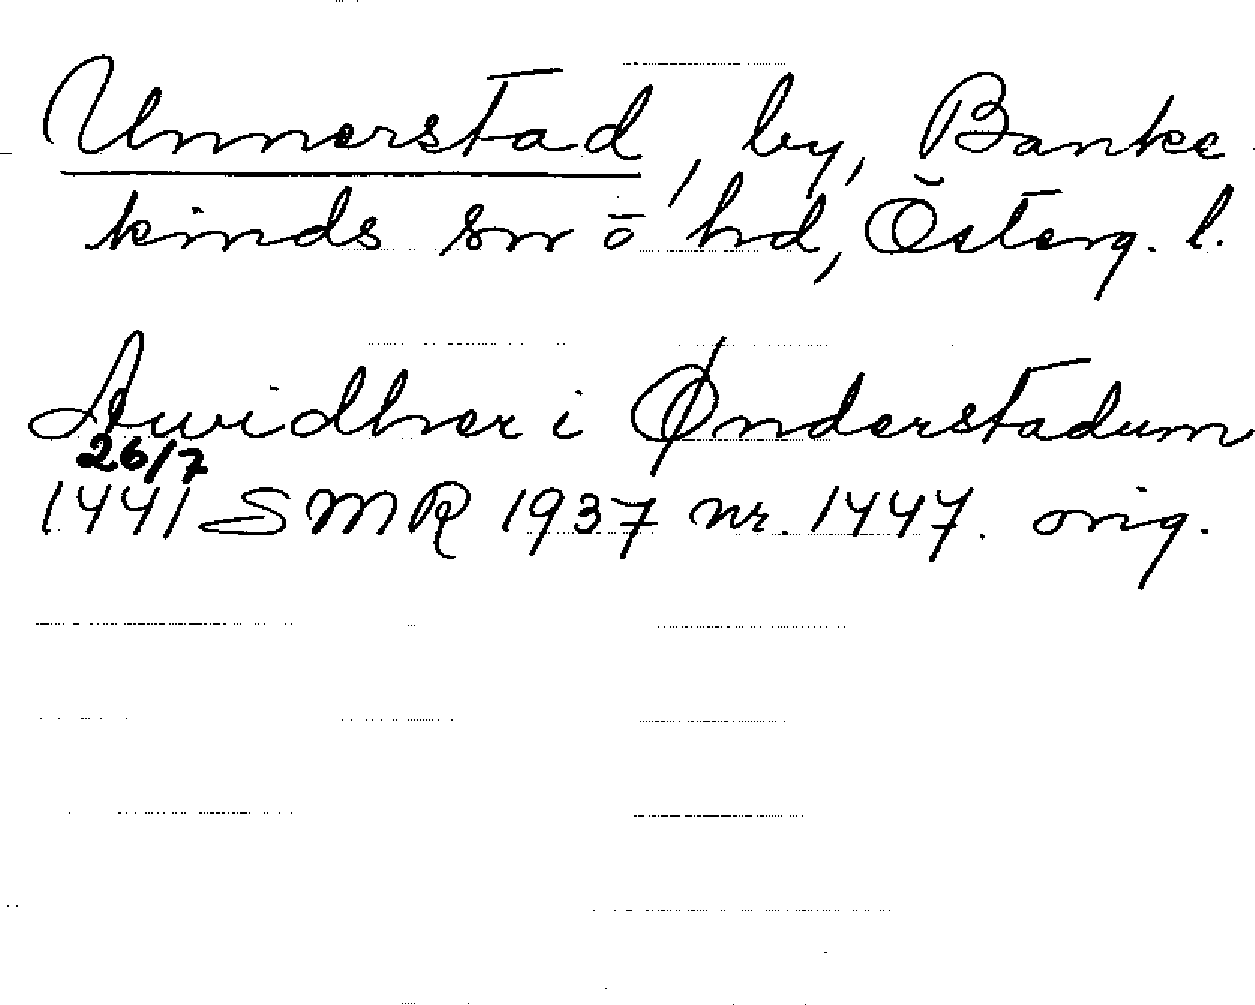 Unnerstad, by, Banke-
kinds sn o hd, Österg. l.
Awidher i Ønderstadum
26/7
1441 SMR 1937 nr. 1447. orig.